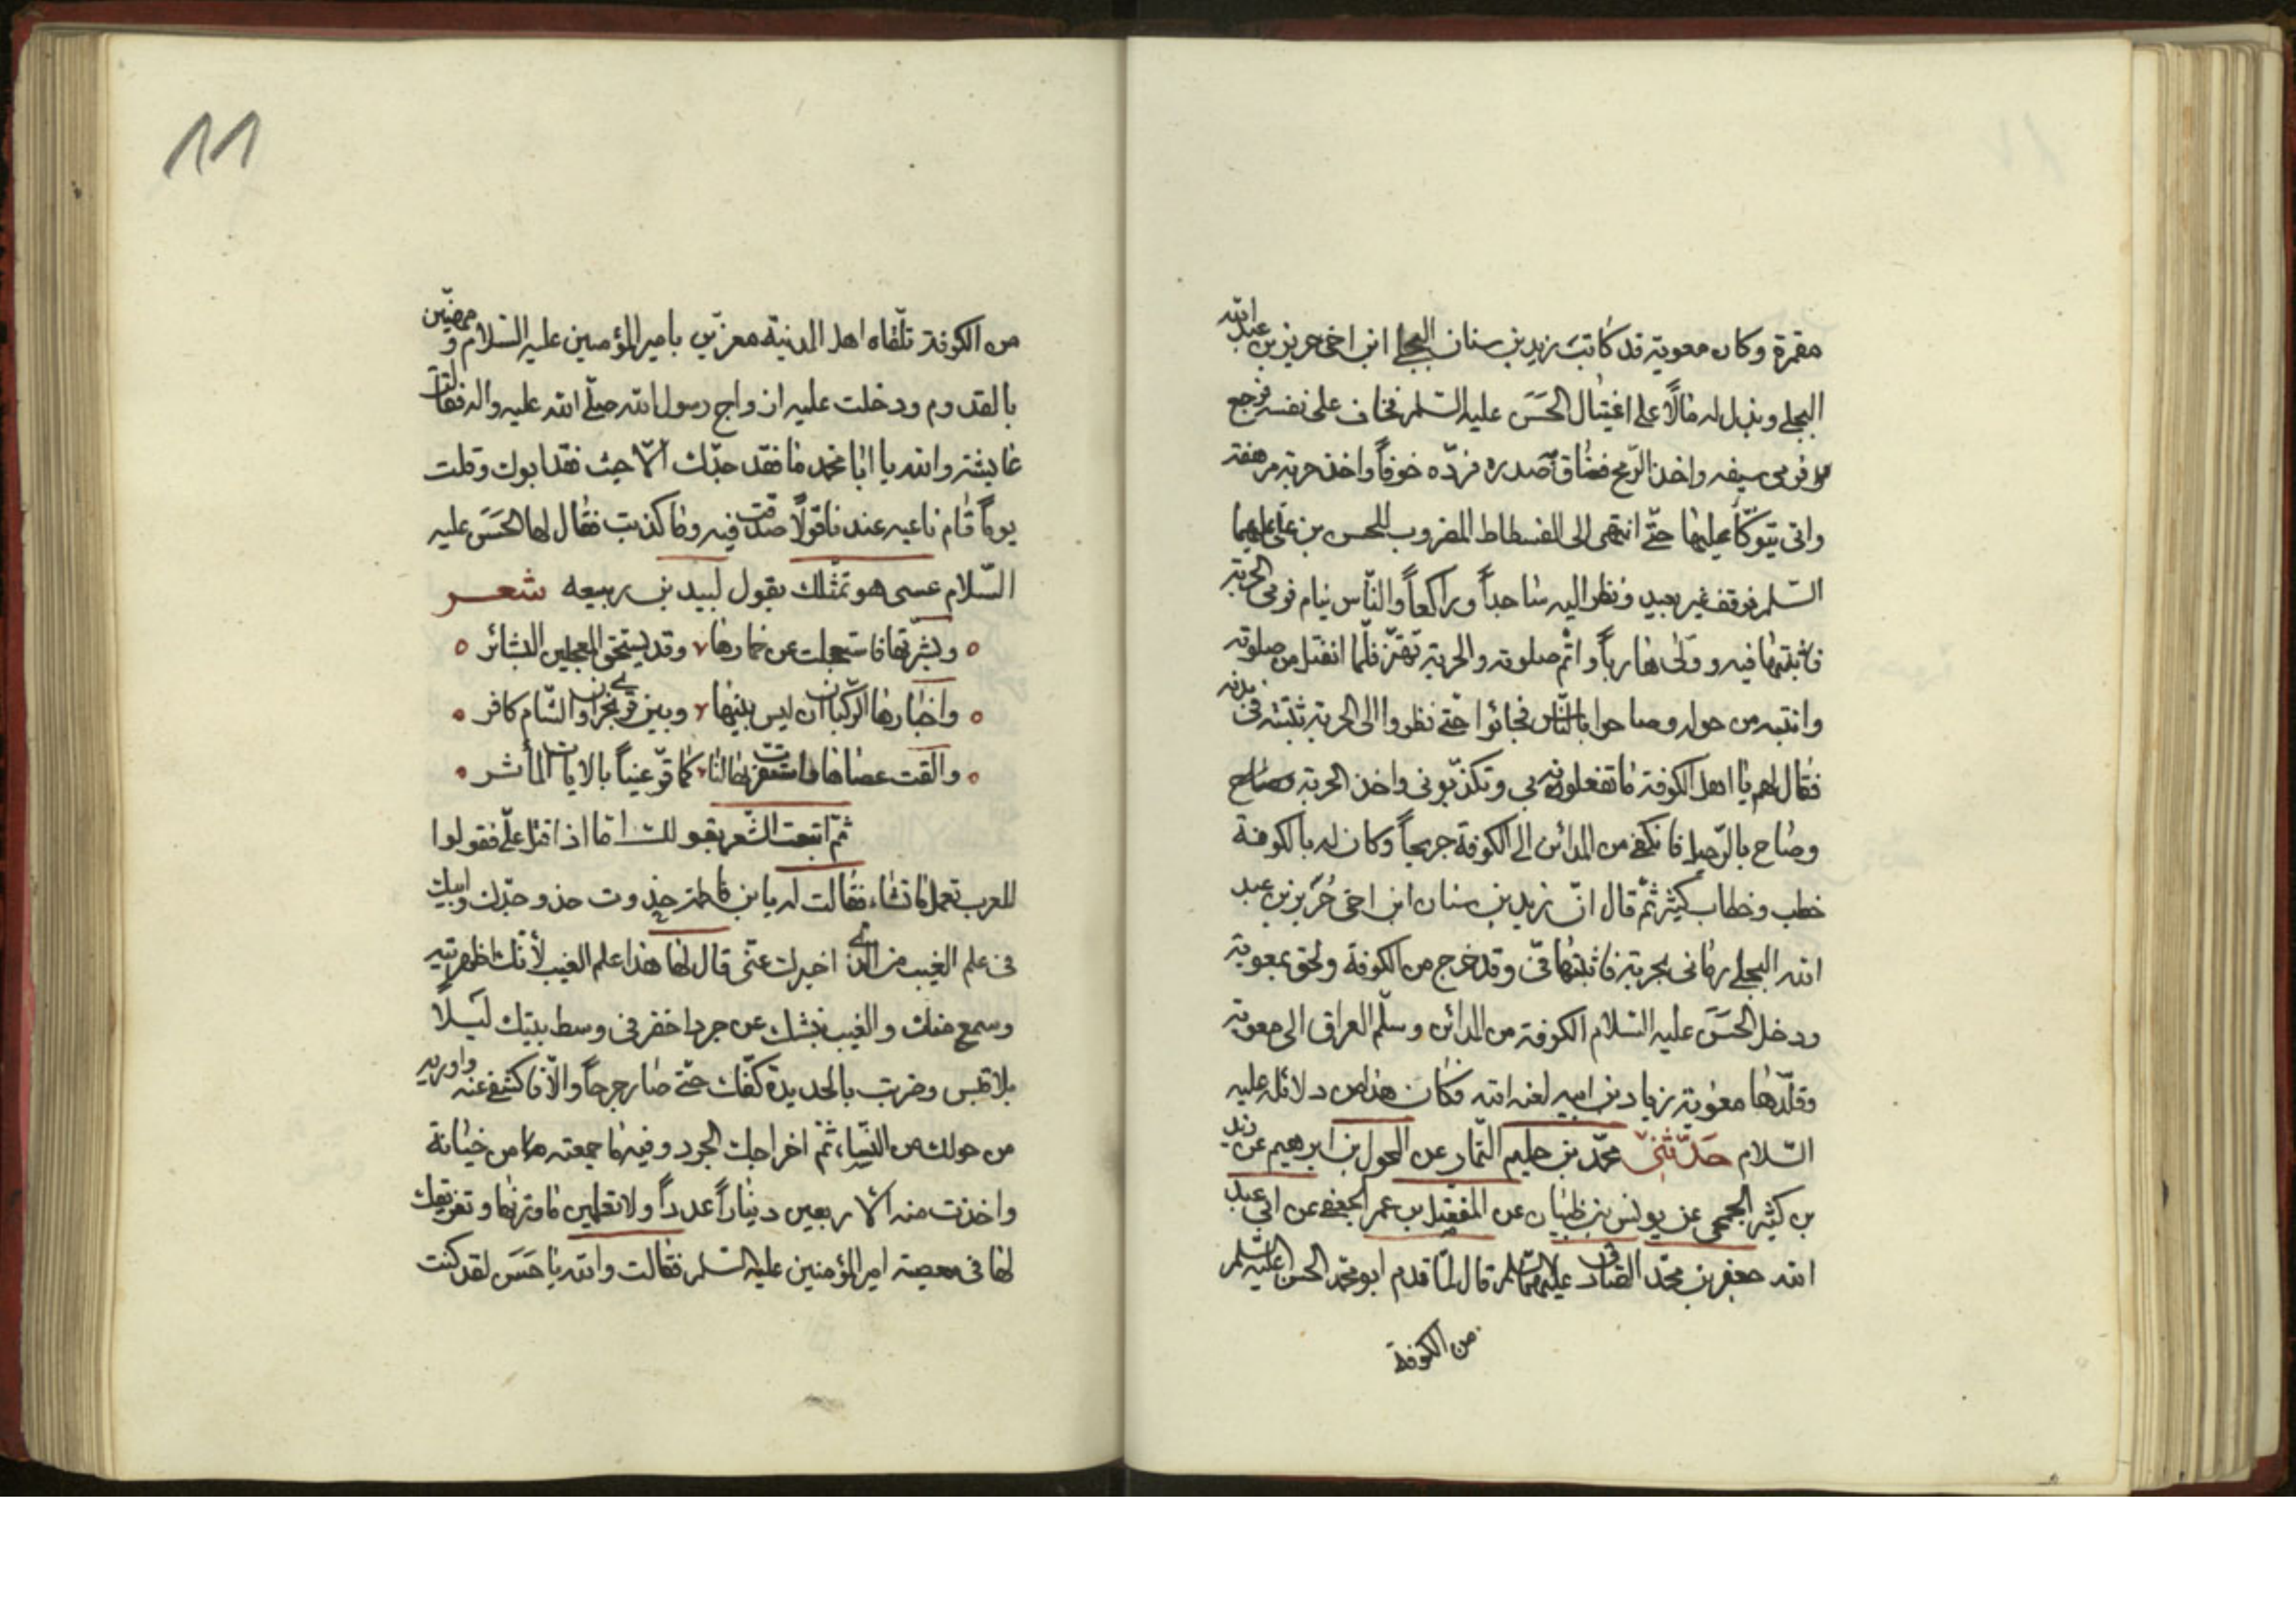 مقمرة وكان معوية قد كاتب زيد بن سنان البجلي ابن اخي حريز بن عبد الله
البجلي وبذل له مالًا على اغتيال الحَسَن عليه السلم فخاف على نفسه فرجع
فرمى سيفه واخذ الرّمح فضاق صدره فردّه خوفاً واخذ حربة مرهفة
واتى يتوكّأ عليها حتّى انتهى الى الفسطاط المضروب للحسن بن علي عليهما
السّلم فوقف غير بعيد ونظر اليه ساجداً وراكعاً والنّاس نيام فرمى الحربة
فاثبتها فيه وولّى هارباً واتم صلوته والحربة تهتزّ فلمّا انفتل من صلوته
وانتبه من حوله وصاحوا بالنّاس فجائوا حتّى نظروا الى الحربة تثبته في بدنه
فقال لهم يا اهل الكوفة ما تفعلون بي وتكذّبوني واخذ الحربة وصاح
وصاح بالرّحيل فانكفى من المدائن الى الكوفة جريحاً وكان له بالكوفة
خطب وخطاب كثير ثمّ قال انّ زيد بن سنان ابن اخي حُرَيز بن عبد
الله البجلي رماني بحربة فاثبتها فيّ وقد خرج من الكوفة ولحق بمعوية
ودخل الحَسَن عليه السّلام الكوفة من المدائن وسلّم العراق الى معوية
وقلّدها معوية زياد بن ابيه لعنه الله فكان هذا من دلائله عليه
السّلام حَدّثَنيّ محمّد بن عليم التّمار عن المحول بن ابرهيم عن زيد
بن كثير الجمحي عن يونس بن ظبيان عن المفضّل بن عمر الجعفي عن ابي عبد
الله جعفر بن محمّد الصّادق عليهما السّلم قال لمّا قدم ابو محمّد الحسن عليه السّلم
من الكوفة
11
من الكوفة تلّقاه اهل المدينة معزّين بامير المؤمنين عليه السّلام و مهنّين
بالقدوم ودخلت عليه ازواج رسول الله صلّى الله عليه واله فقالت
عايشة والله يا ابا محمد ما فقد جدّك الّا حيث فقد ابوك وقلت
يوماً قام ناعيه عندنا قولًا صدقت فيه وما كذبت فقال لها الحَسَن عليه
السّلام عسى هو تمثّلك بقول لبيد بن ربيعه شعر
وبشّرتها فاستعجلت عن خمارها وقد يستحق المعجلين البشائر
واخبارها الركبان ان ليس بينها وبين قرى نجران والشّام كافر
والقت عصاها فاستقرت بها النّا كما قرّ عيناً بالاياب المأشر
ثمّ اتبعت الشّعر بقولك اما اذا قتل عليّ فقولوا
للعرب تعمل ما تشاء فقالت له يا بن فاطمة حذوت حذو جدّك وابيك
في علم الغيب من الذي اخبرك عنّي قال لها هذا علم الغيب لأنّك اظهرتيه
وسمع منك والغيب نبشك عن جرد اخضر في وسط بيتك ليلًا
بلا قبس وضربت بالحديدة كفّك حتّى صار جرحاً والّا فاكشفي عنه واوريه
من حولك من النّساء ثمّ اخراجك الجرد وفيه ما جمعته من خيانة
واخذت منه الا ربعين ديناراً عدداً ولا تعلمين ما وزنها وتفريقك
لها في معصية امير المؤمنين عليه السلم فقالت والله يا حَسَن لقد كنت